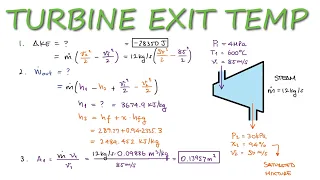 TURBINE EXIT TEMP
1. ΔKE = ?
= ṁ (V₂²/2 - V₁²/2) = 12 kg/s (50²/2 - 85²/2) = -28350 J
2. Ẇout = ?
= ṁ (h₁ - h₂ + V₁²/2 - V₂²/2)
h₁ = ? = 3674.9 kJ/kg
h₂ = hf + x·hfg
= 289.27+0.94·2335.3
= 2484.452 kJ/kg
3. A₁ = ṁ v₁/V₁ = 12 kg/s · 0.09886 m³/kg / 85 m/s = 0.13957 m²
P₁ = 4MPa
T₁ = 600°C
V₁ = 85 m/s
STEAM
ṁ = 12 kg/s
P₂ = 30kPa
X₂ = 94%
V₂ = 50 m/s
SATURATED
MIXTURE